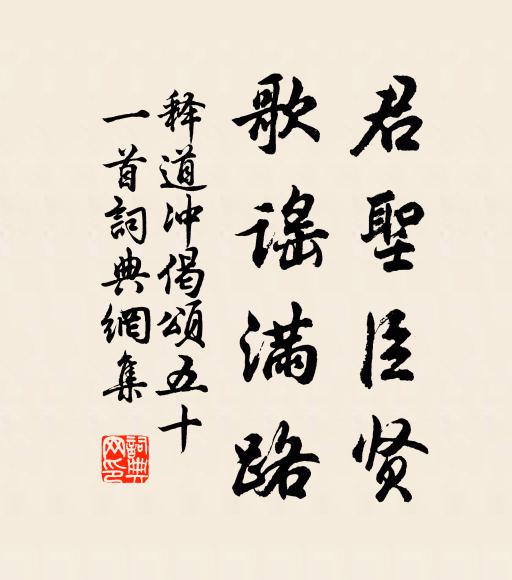 君聖臣贤
歌謡满路
释道冲偈頌五十
一首詞典網集
詞典
网印